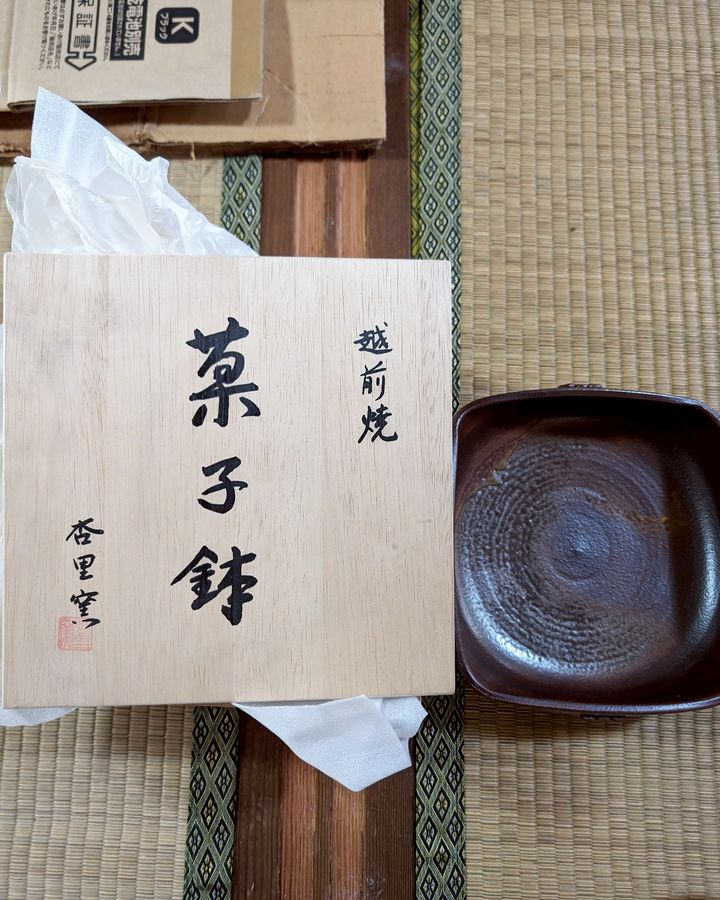 越前焼
菓子鉢
杏里窯
保証書
K
ブラック